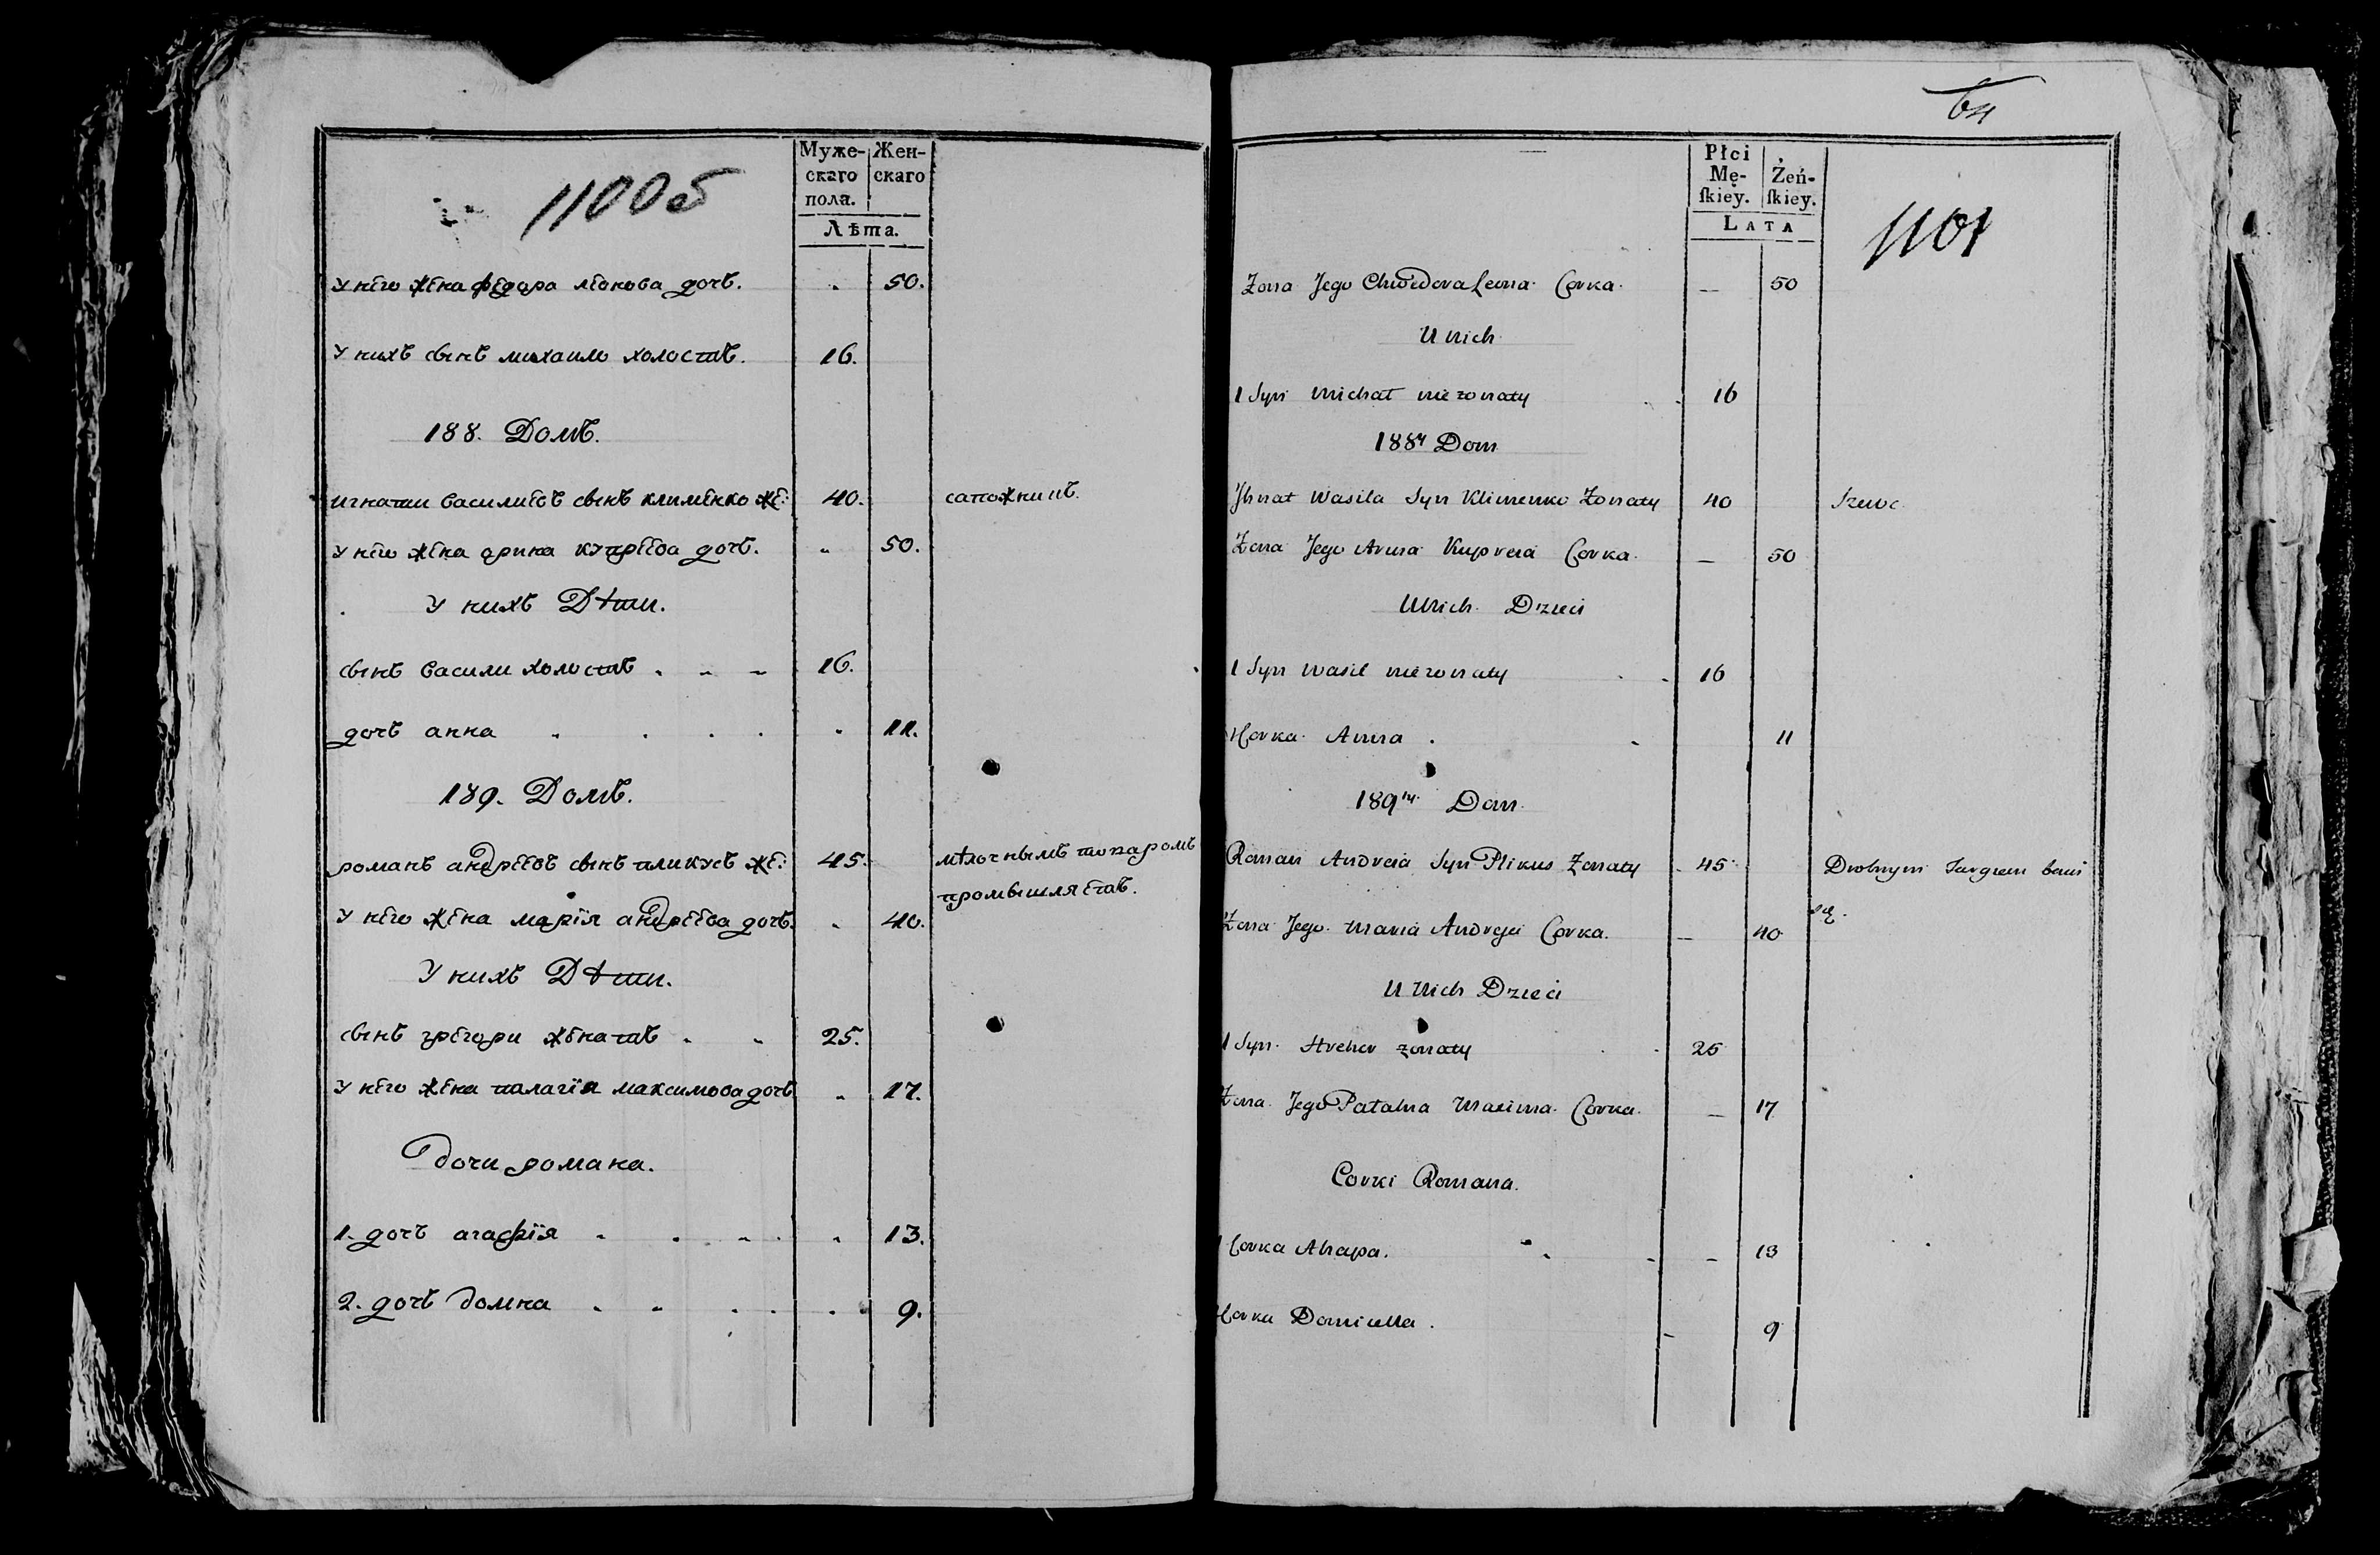 1100об
Муже-
скаго
пола.
Жен-
скаго
Лѣта.
У него жена федора леонова дочъ. 50.
У нихъ сынъ михаило холостъ. 16.
188. Домъ.
игнатии василиевъ сынъ клименко же: 40. сапожникъ.
У него жена арина купреева дочъ. 50.
У нихъ Дѣти.
сынъ васили холостъ 16.
дочъ анна 11.
189. Домъ.
романъ андреевъ сынъ пликусъ же: 45. мѣлочнымъ товаромъ
промышляетъ.
У него жена марія андреева дочъ. 40.
У нихъ Дѣти.
сынъ грегори женатъ 25.
У него жена палагія максимова дочъ 17.
Дочи романа.
1. дочъ агафія 13.
2. дочъ домна 9.
64
Płci
Mę-
ſkiey.
Żeń-
ſkiey.
LATA
1101
Zona Jego Chwedora Leona Corka 50
U nich
1 Syn Michał niezonaty 16
188ty Dom
Jhnat Wasila Syn Klimenko Zonaty 40 Szewc
Zona Jego Arina Kupreia Corka 50
U nich Dzieci
1 Syn Wasil niezonaty 16
1 Corka Anna 11
189ty Dom
Roman Andreia Syn Plikus Zonaty 45 Drobnym Targiem bawi
się.
Zona Jego Maria Andreja Corka. 40
U Nich Dzieci
1 Syn Hrehor zonaty 25
Zona Jego Patahia Maxima Corka 17
Corki Romana.
1 Corka Ahapa. 13
1 Corka Domicella. 9